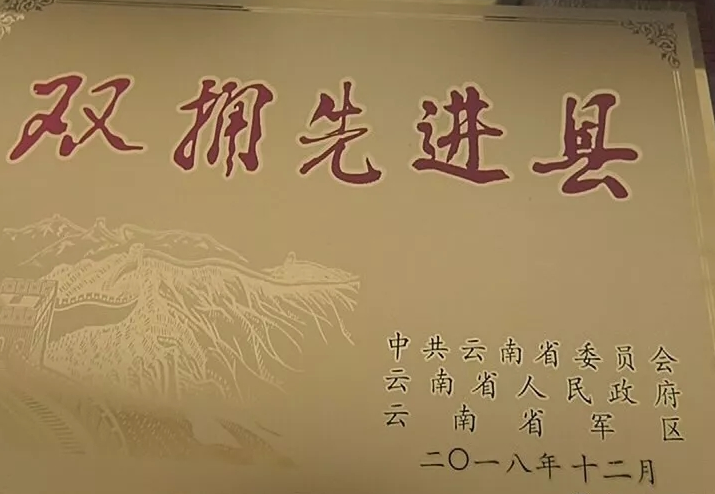 双拥先进县
中共云南省委员会
云南省人民政府
云南省军区
二〇一八年十二月